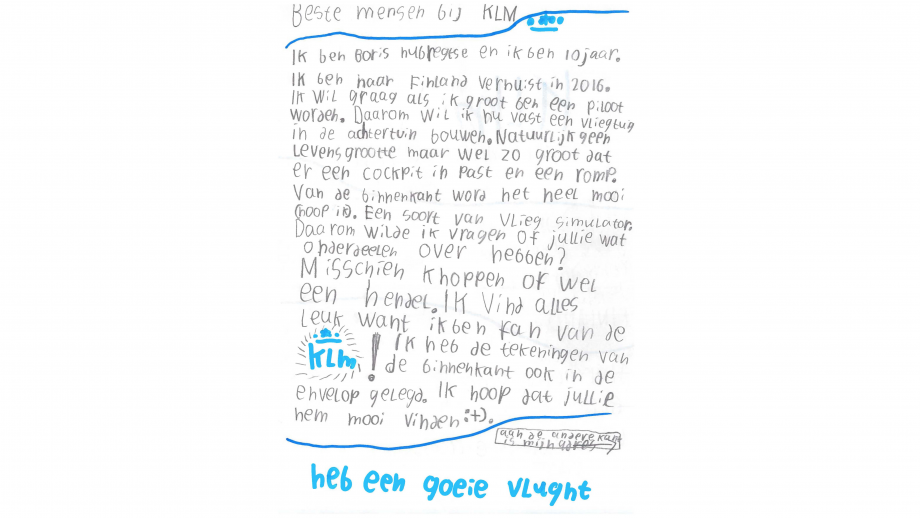 Beste mensen bij KLM
Ik ben Boris hubregtse en ik ben 10 jaar.
Ik ben naar Finland verhuist in 2016.
Ik wil graag als ik groot ben een piloot
worden. Daarom wil ik nu vast een vliegtug
in de achtertuin bouwen. Natuurlijk geen
Levensgrootte maar wel zo groot dat
er een cockpit in past en een romp.
Van de binnenkant word het heel mooi
(hoop ik). Een soort van vlieg simulator.
Daarom wilde ik vragen of jullie wat
onderdeelen over hebben?
Misschien knoppen of wel
een hendel. Ik vind alles
Leuk want ik ben fan van de
KLM! Ik heb de tekeningen van
de binnenkant ook in de
envelop gelegd. Ik hoop dat jullie
hem mooi vinden :+).
aan de andere kant
is mijn adres
heb een goeie vlught